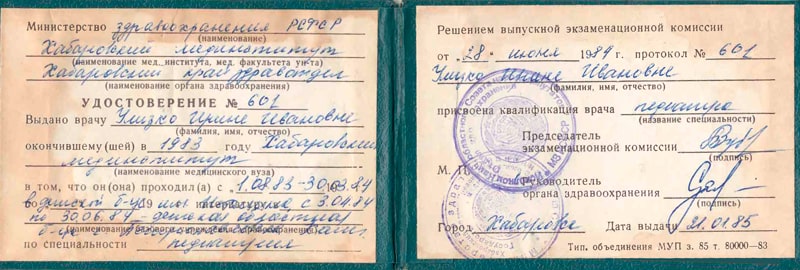 Министерство здравоохранения РСФСР
(наименование)
Хабаровский мединститут
(наименование мед. института, мед. факультета ун-та)
Хабаровский крайздравотдел
(наименование органа здравоохранения)
УДОСТОВЕРЕНИЕ № 601
Выдано врачу Улизко Ирине Ивановне
(фамилия, имя, отчество)
окончившему(шей) в 1983 году Хабаровский
мединститут
(наименование медицинского вуза)
в том, что он(она) проходил(а) с 1.08.83-30.03.84
в детской б-це с 3.04.84
по 30.06.84 - детская областная
б-ца
(наименование базового учреждения здравоохранения)
по специальности педиатрия
Решением выпускной экзаменационной комиссии
от "28" июня 1984 г. протокол № 601
Улизко Ирине Ивановне
(фамилия, имя, отчество)
присвоена квалификация врача педиатра
(название специальности)
Председатель
экзаменационной комиссии
(подпись)
М. П.
Руководитель
органа здравоохранения
(подпись)
Город Хабаровск Дата выдачи 21.01.85
Тип. объединения МУП з. 85 т. 80000—83